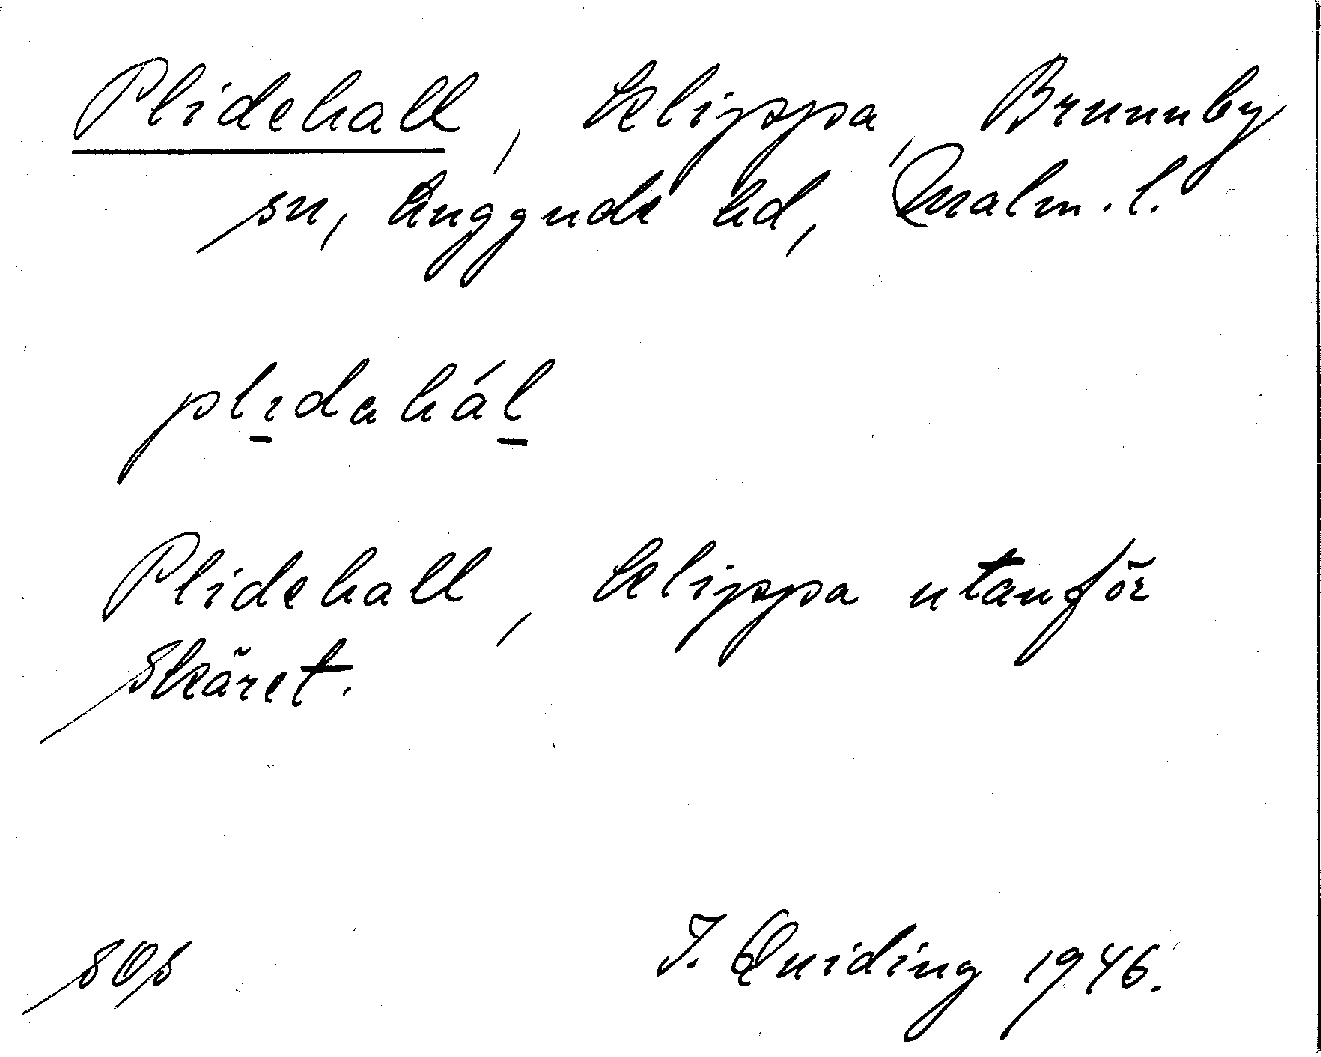 Plidehall, klippa, Brunnby
sn, Luggude hd, Malm. l.
plıdahál
Plidehall, klippa utanför
Skäret.
SOS
I. Quiding 1946.